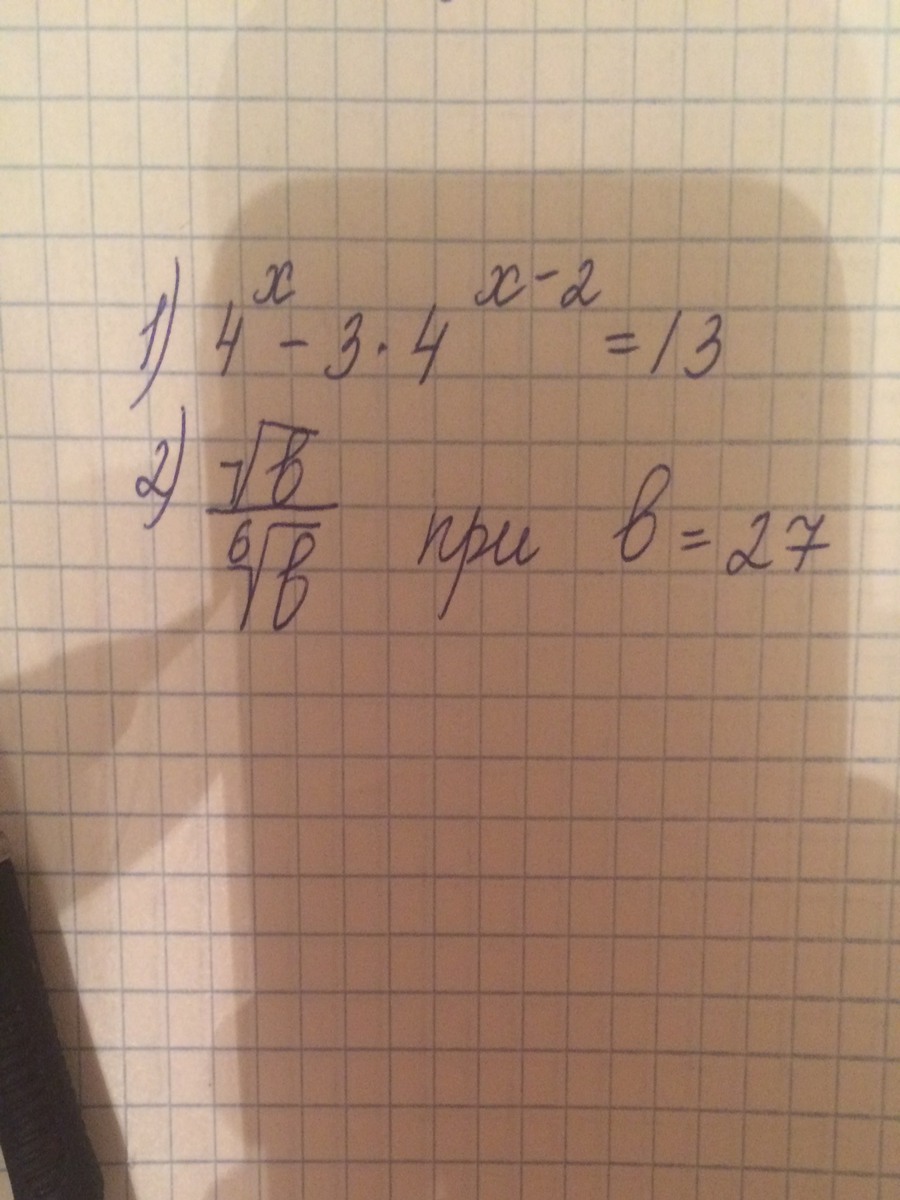 1) 4^x - 3 · 4^(x-2) = 13
2) √b / ⁶√b при b = 27